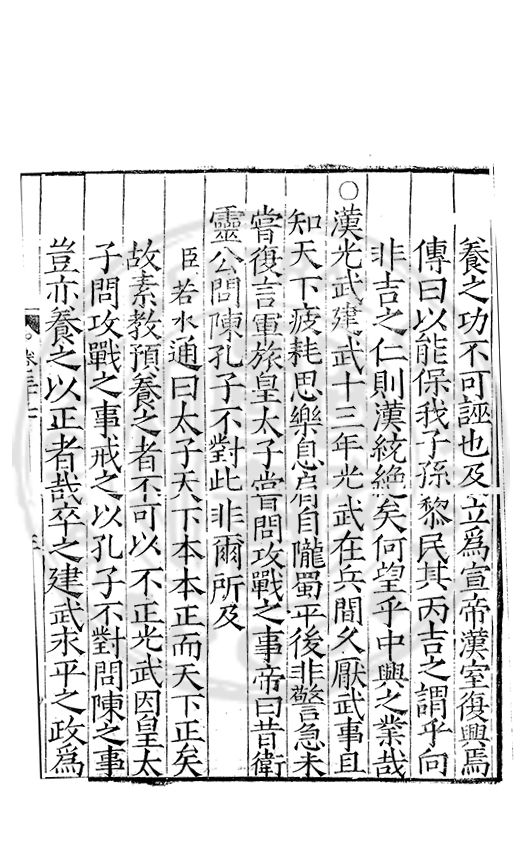 養之功不可誣也及立爲宣帝漢室復興焉
傳曰以能保我子孫黎民其丙吉之謂乎向
非吉之仁則漢統絶矣何望乎中興之業哉
○漢光武建武十三年光武在兵間久厭武事且
知天下疲耗思樂息肩自隴蜀平後非警急未
嘗復言軍旅皇太子嘗問攻戰之事帝曰昔衛
靈公問陳孔子不對此非爾所及
臣若水通曰太子天下本本正而天下正矣
故素教預養之者不可以不正光武因皇太
子問攻戰之事戒之以孔子不對問陳之事
豈亦養之以正者哉卒之建武永平之政爲